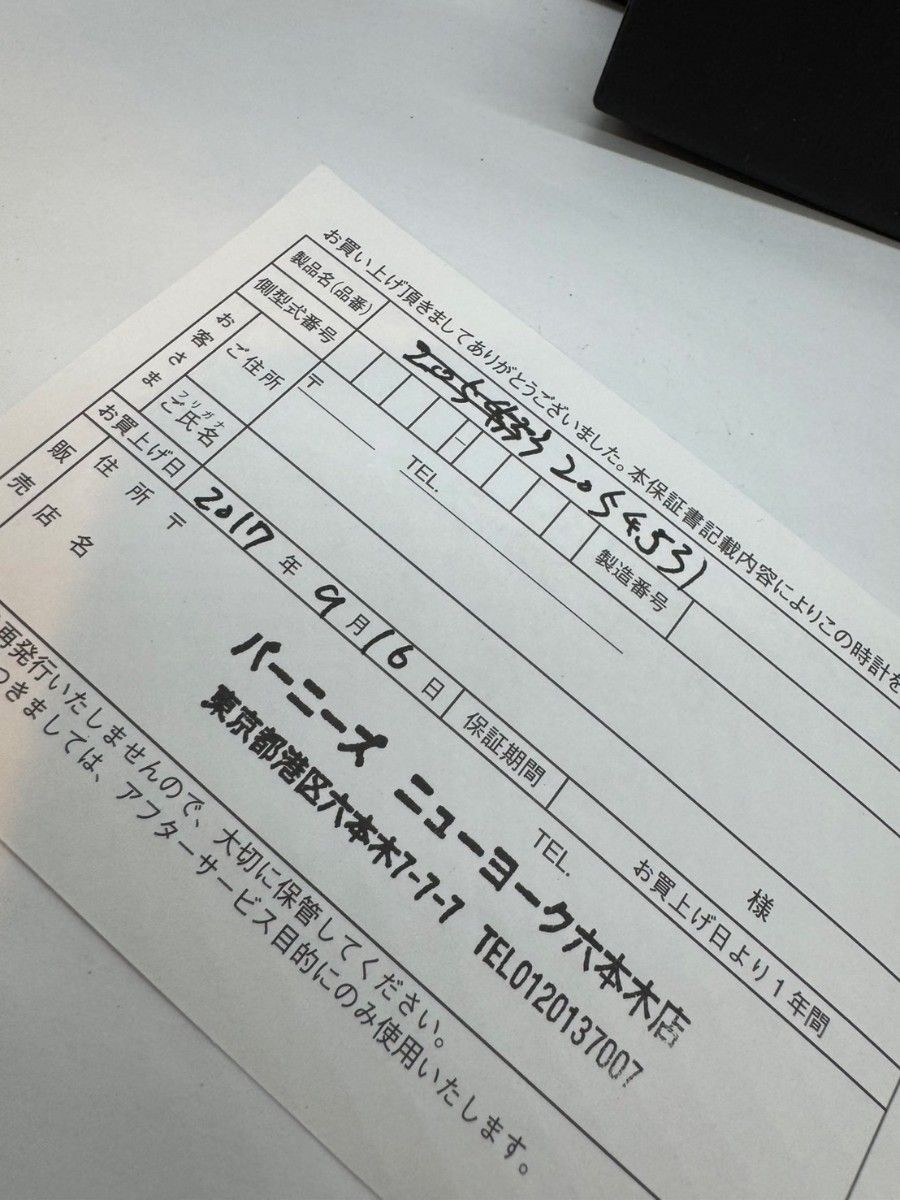 お買い上げ頂きましてありがとうございました。本保証書記載内容によりこの時計を
製品名(品番) 2054531
側型式番号 製造番号
お客さま ご住所 〒 TEL.
フリガナ
ご氏名 様
お買上げ日 2017年9月16日 保証期間 お買上げ日より1年間
販売店 住所 〒 TEL.
名
バーニーズ ニューヨーク六本木店
東京都港区六本木7-7-7 TEL0120137007
再発行いたしませんので、大切に保管してください。
つきましては、アフターサービス目的にのみ使用いたします。